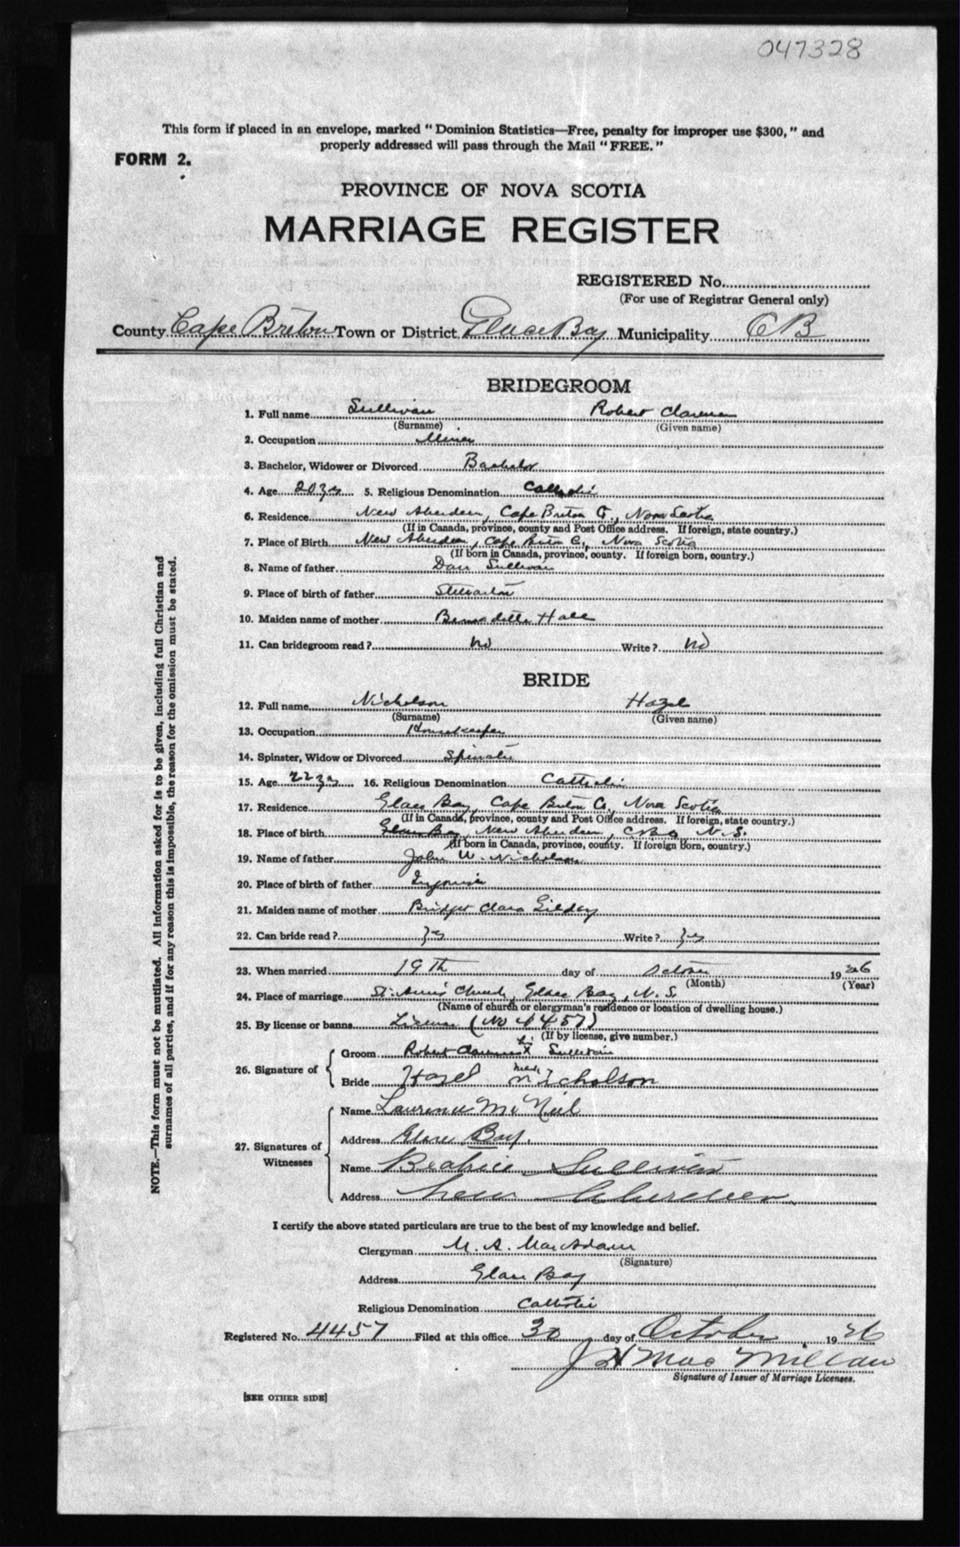 047328
This form if placed in an envelope, marked "Dominion Statistics—Free, penalty for improper use $300," and
properly addressed will pass through the Mail "FREE."
FORM 2.
PROVINCE OF NOVA SCOTIA
MARRIAGE REGISTER
REGISTERED No.
(For use of Registrar General only)
County Cape Breton Town or District Glace Bay Municipality CB
BRIDEGROOM
1. Full name Sullivan Robert Clarence
(Surname) (Given name)
2. Occupation Miner
3. Bachelor, Widower or Divorced Bachelor
4. Age 20 yrs 5. Religious Denomination Catholic
6. Residence New Aberdeen, Cape Breton Co., Nova Scotia
(If in Canada, province, county and Post Office address. If foreign, country.)
7. Place of Birth New Aberdeen, Cape Breton Co., Nova Scotia
(If born in Canada, province, county. If foreign born, country.)
8. Name of father Dan Sullivan
9. Place of birth of father Stellarton
10. Maiden name of mother Bernadette Hall
11. Can bridegroom read? No Write? No
BRIDE
12. Full name Nicholson Hazel
(Surname) (Given name)
13. Occupation Housekeeper
14. Spinster, Widow or Divorced Spinster
15. Age 22 yrs 16. Religious Denomination Catholic
17. Residence Glace Bay, Cape Breton Co., Nova Scotia
(If in Canada, province, county and Post Office address. If foreign, state country.)
18. Place of birth Glace Bay, New Aberdeen, N.S.
(If born in Canada, province, county. If foreign born, country.)
19. Name of father John W. Nicholson
20. Place of birth of father Ingonish
21. Maiden name of mother Bridget Clara Gilday
22. Can bride read? Yes Write? Yes
23. When married 19th day of October 1926
(Month) (Year)
24. Place of marriage St. Ann's Church, Glace Bay, N.S.
(Name of church or clergyman's residence or location of dwelling house.)
25. By license or banns License (No 4457)
(If by license, give number.)
26. Signature of
Groom Robert Clarence his X Sullivan
mark
Bride Hazel Nicholson
27. Signatures of Witnesses
Name Laurence McNeil
Address Glace Bay.
Name Beatrice Sullivan
Address New Aberdeen
I certify the above stated particulars are true to the best of my knowledge and belief.
Clergyman M. A. MacAdam
(Signature)
Address Glace Bay
Religious Denomination Catholic
Registered No. 4457 Filed at this office 30 day of October 1926
J H MacMillan
Signature of Issuer of Marriage Licenses.
[SEE OTHER SIDE]
NOTE.—This form must not be mutilated. All information asked for is to be given, including full Christian and
surnames of all parties, and if for any reason this is impossible, the reason for the omission must be stated.